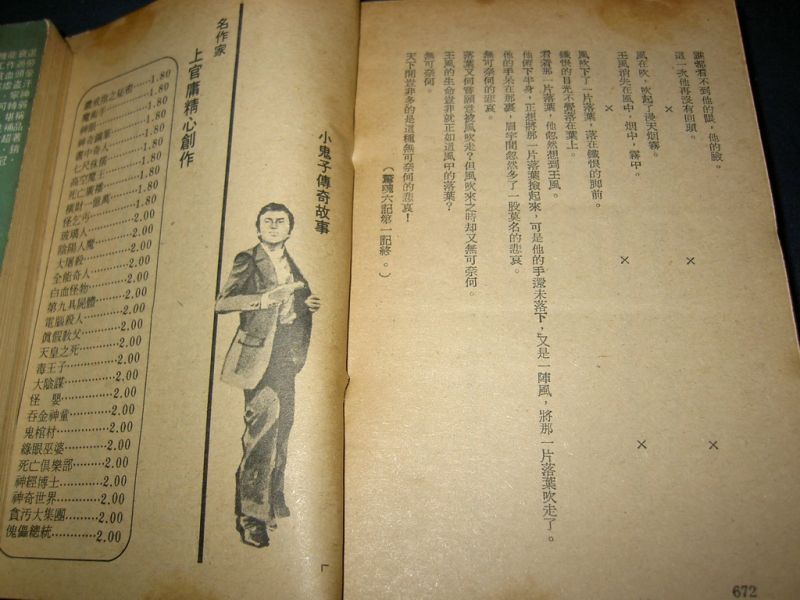 誰都看不到他的眼，他的臉。
這一次他再沒有回頭。
× × ×
風在吹，吹起了漫天烟霧。
王風消失在風中，烟中，霧中。
× × ×
風吹下了一片落葉，落在鐵恨的脚前。
鐵恨的目光不覺落在葉上。
看着那一片落葉，他忽然想到王風。
他俯下半身，正想將那一片落葉撿起來，可是他的手還未落下，又是一陣風，將那一片落葉吹走了。
他的手呆在那裏，眉宇間忽然多了一股莫名的悲哀。
無可奈何的悲哀。
落葉又何嘗願意被風吹走？但風吹來之時却又無可奈何。
王風的生命豈非就正如這風中的落葉？
無可奈何。
天下間豈非多的是這種無可奈何的悲哀！
（驚魂六記第一記終。）
672
小鬼子傳奇故事
名作家
上官庸精心創作
1.80
魔術手……1.80
神眼……1.80
神奇國軍……1.80
畫中奇人……1.80
七尺侏儒……1.80
高空魔王……1.80
死亡廣播……1.80
橫財一億萬……1.80
怪乞丐……1.80
玻璃人……2.00
陰陽人魔……2.00
大屠殺……2.00
全能奇人……2.00
白血怪物……2.00
第九具屍體……2.00
電腦殺人……2.00
眞假教父……2.00
天皇之死……2.00
毒王子……2.00
大陰謀……2.00
怪嬰……2.00
吞金神童……2.00
鬼棺材……2.00
綠眼巫婆……2.00
死亡俱樂部……2.00
神經博士……2.00
神奇世界……2.00
貪汚大集團……2.00
傀儡總統……2.00